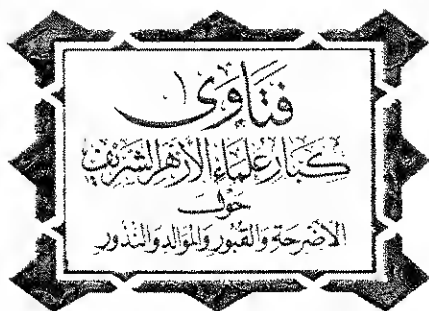 فتاوى
كبار علماء الأزهر الشريف
حول
الأضرحة والقبور والموالد والنذور